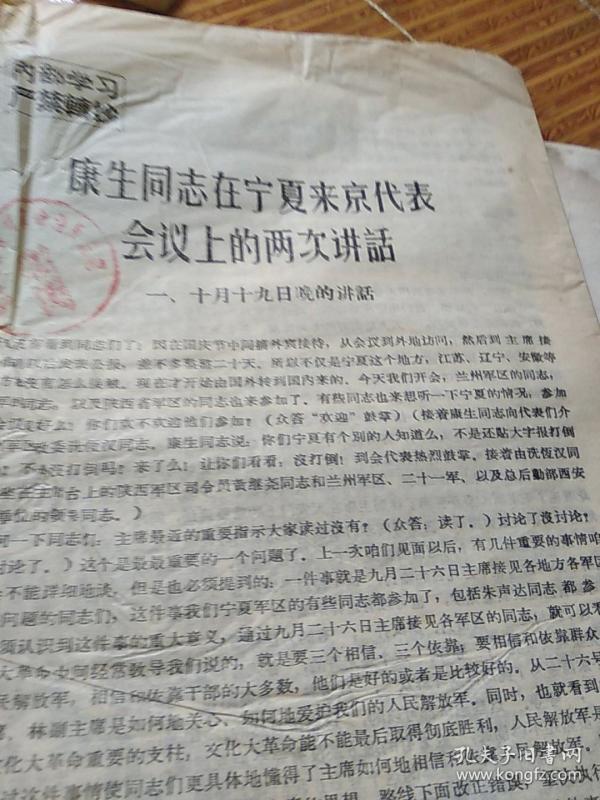 内部学习
严禁转抄
康生同志在宁夏来京代表
会议上的两次讲話
一、十月十九日晚的讲話
看到同志们了；因在国庆节中间搞外宾接待，从会议到外地访问，然后到主席接
差不多整整二十天。所以不仅是宁夏这个地方，江苏、辽宁、安徽等
没有怎么接触。现在才开始由国外转到国内来的。今天我们开会，兰州军区的同志，
同志，以及陕西省军区的同志也来参加了。有些同志也来想听一下宁夏的情况，参加
好么？你们欢不欢迎他们参加？（众答“欢迎”鼓掌）（接着康生同志向代表们介
冼恆汉同志。康生同志说：你们宁夏有个別的人知道么，不是还贴大字报打倒
不是沒打倒吗？来了么！让你们看看，沒打倒！到会代表热烈鼓掌。接着由冼恆汉同
坐在主席台上的陕西军区司令员黄继尧同志和兰州军区、二十一军、以及总后勤部西安
单位的领导同志。）
问一下同志们：主席最近的重要指示大家读过沒有？（众答：读了。）讨论了沒讨论？
讨论了。）这个是最最重要的一个问题了。上一次咱们见面以后，有几件重要的事情咱
不能详细地谈，但是也必须提到的：一件事就是九月二十六日主席接见各地方各军区
问题的同志们，这件事我们宁夏军区的有些同志都参加了，包括朱声达同志都参
须认识到这件事的重大意义，通过九月二十六日主席接见各军区的同志，就可以看
大革命中间经常教导我们说的，就是要三个相信、三个依靠；要相信和依靠群众
民解放军，相信和依靠干部的大多数，他们是好的或者是比较好的。从二十六号
席、林副主席是如何地关心、如何地爱护我们的人民解放军。同时，也就看到
化大革命重要的支柱，文化大革命能不能最后取得彻底胜利，人民解放军是
过这件事情使同志们更具体地懂得了主席如何地相信人民解放军，
思想、路线下面改正错误，坚决执行
孔夫子旧书网
www.kongfz.com